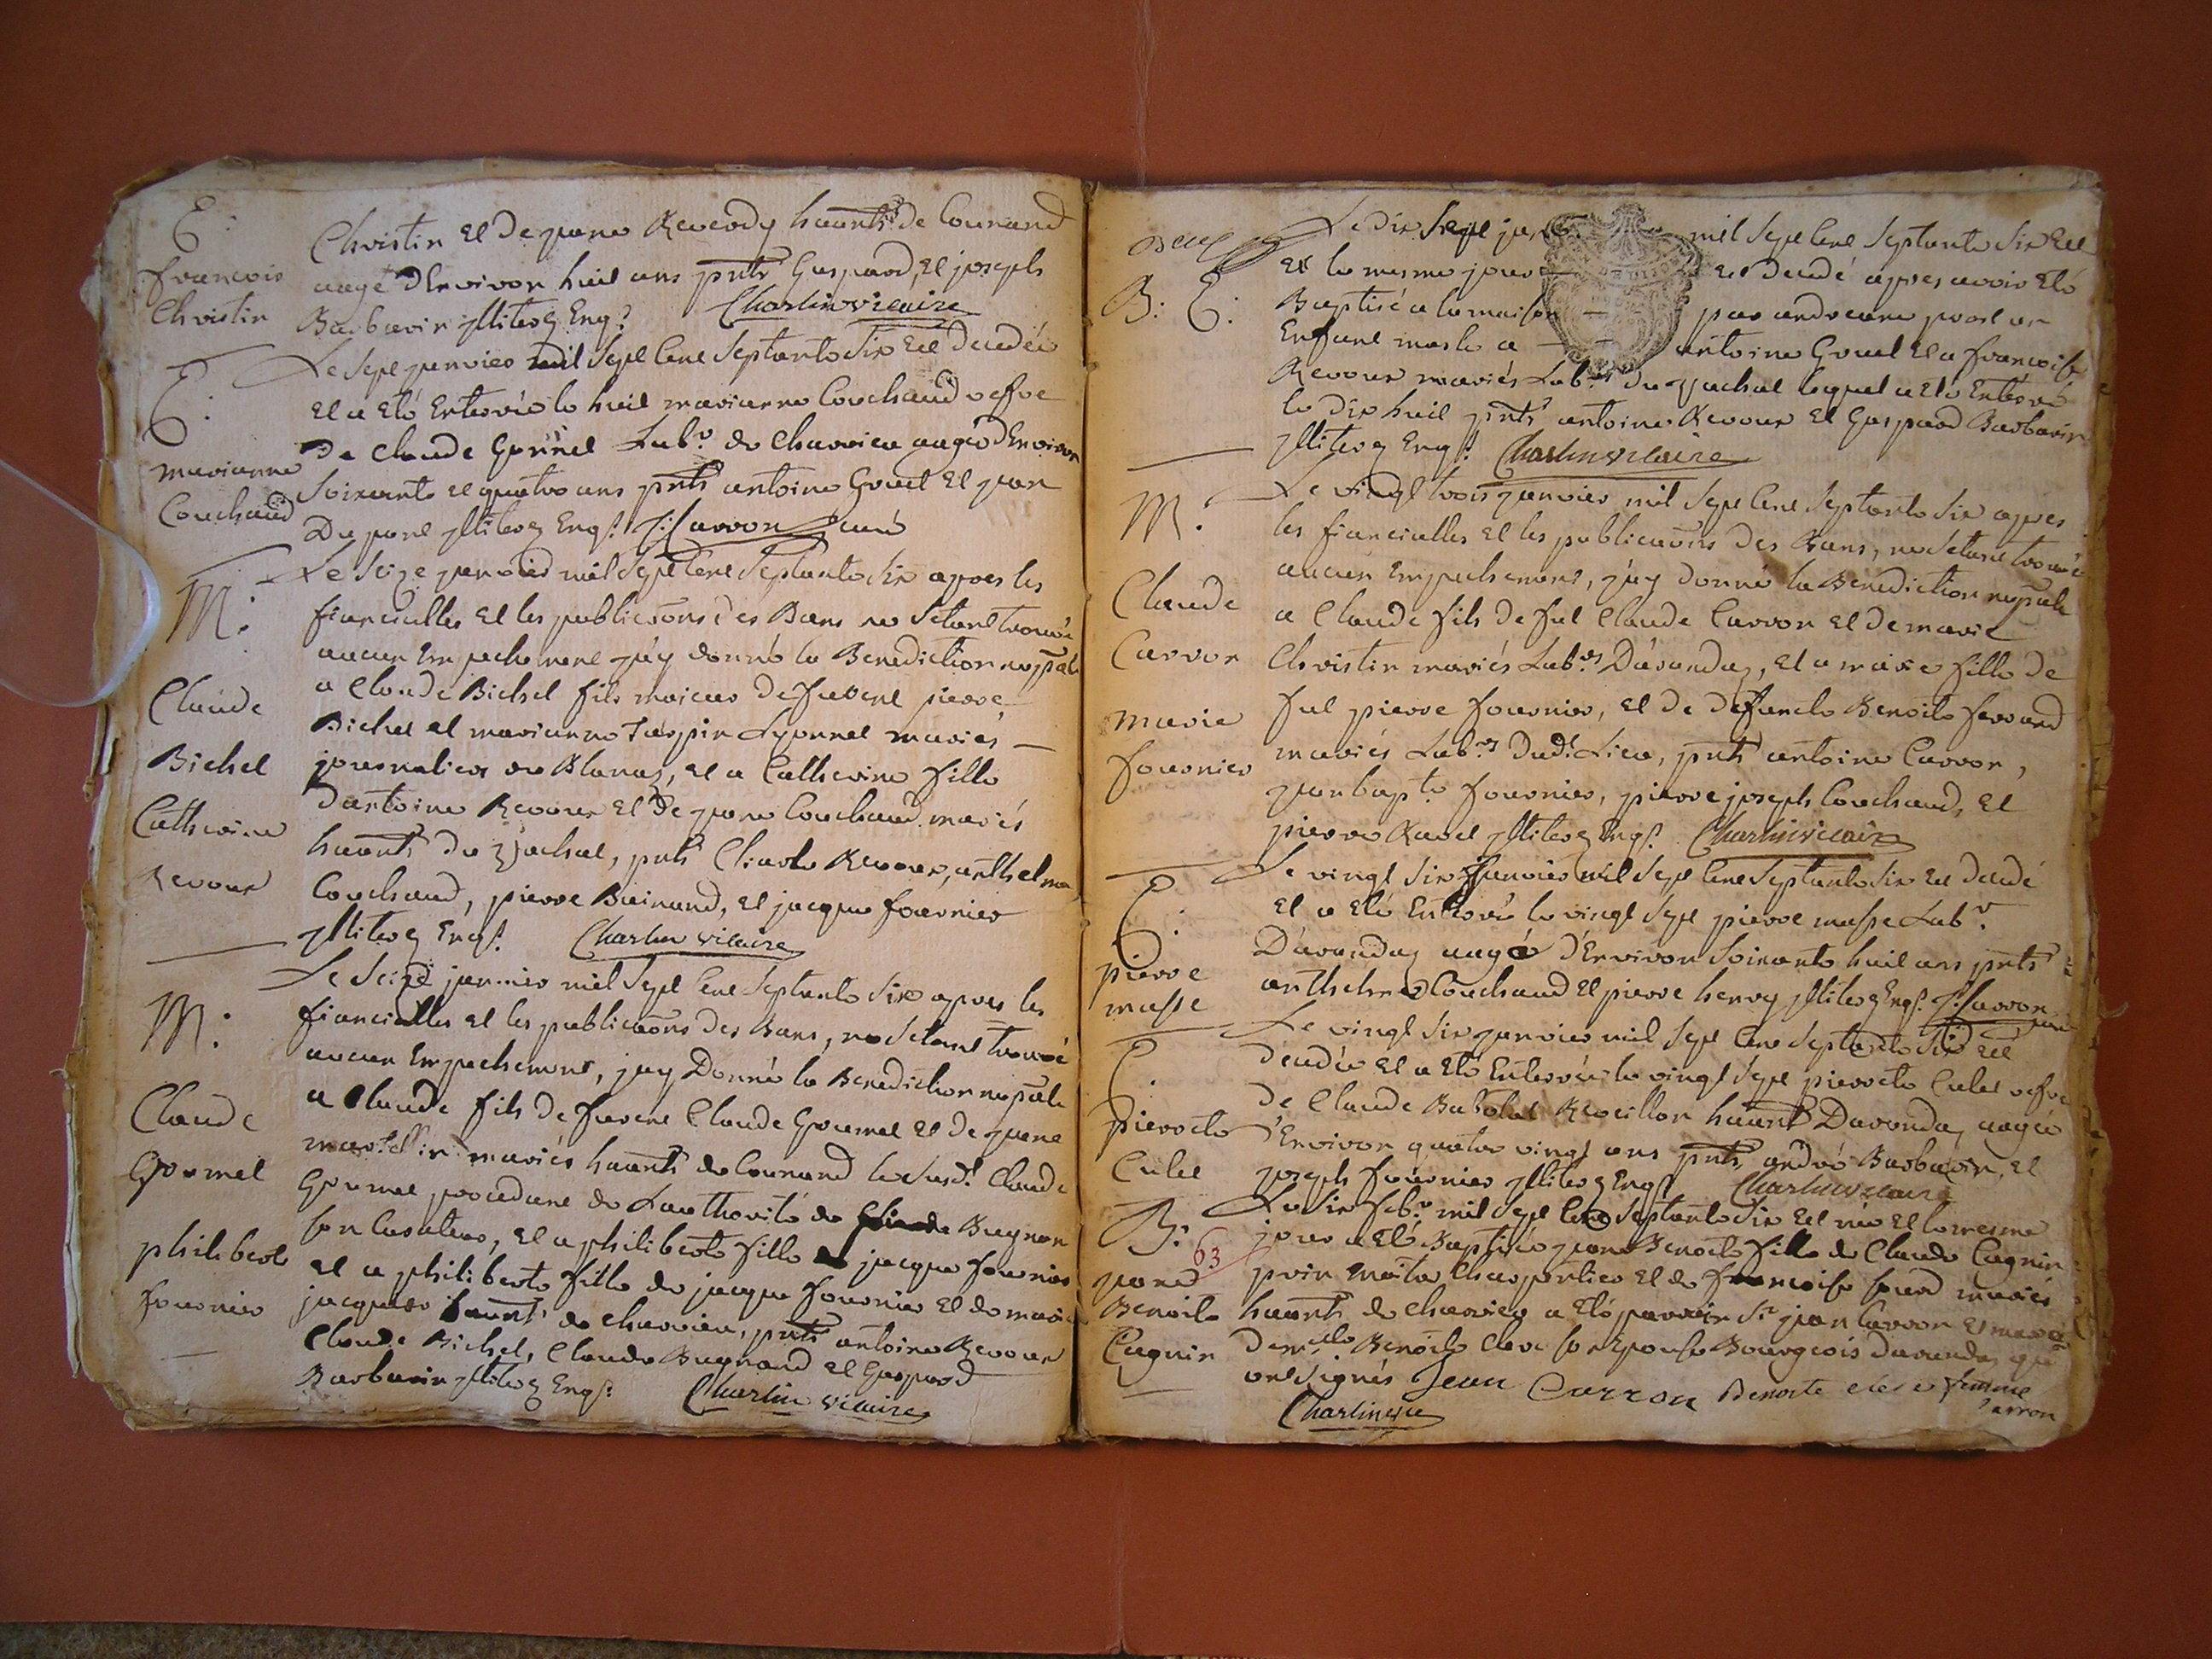 E:
françois
Christin
Christin et de jeane Reverdy hûants de Counand
aagé d'Environ huit ans pnts Gaspard, et joseph
Barbarin illiterés Enqs. Charlin vicaire
E:
marianne
Couchaud
Le sept janvier mil sept cent septante six est decedée
et a eté Enterrée le huit marianne Couchaud vefve
de Claude Gonnel Labr. de Charvieu aagée d'Environ
soixante et quatre ans pnts antoine Gouet et jean
Dupont illiterés Enqs. J: Carron curé
M:
Claude
Bichel
Catherine
Revour
Le seize janvier mil sept cent septante six apres les
fiancialles et les publicaõns des Bans ne s'etant trouvé
aucun Empechement j'ay donné la Benediction nuptiale
a Claude Bichel fils majeur de fuvent pierre
Bichel et marianne mariés
journaliers de Blanaz, et a Catherine fille
d'antoine Revour et de jeane Couchaud mariés
hûants du Zjachat, pnts Charle Revour, anthelme
Couchaud, pierre Buinand, et jacque fournier
illiterés Enqs. Charlin vicaire
M:
Claude
Gourmel
philiberte
fournier
Le seize janvier mil sept cent septante six apres les
fiancialles et les publicaõns des Bans, ne s'etant trouvé
aucun Empechement, j'ay Donné la Benediction nuptiale
a Claude fils de fuvent Claude Gourmel et de jeane
martellin mariés hûants de Counand le susdt. Claude
Gourmel procedant de L'authorité de Bugnon
son Curateur, et a philiberte fille jacque fournier
et a philiberte fille de jacque fournier et de marie
jacquier hûants de Charvieu, pnts antoine Revour
Claude Bichel, Claude Bugnand et Gaspard
Barbarin illiterés Enqs. Charlin vicaire
B: E:
Le dix sept janv. mil sept cent septante six est
et le mesme jour est decedé apres avoir eté
Baptisé a la maison par pour un
Enfant masle a antoine Gouet et a françoise
Revour mariés Labrs. du Zjachat lequel a eté Enterré
le dix huit pnts antoine Revour et Gaspard Barbarin
illiterés Enqs. Charlin vicaire
M:
Claude
Carron
marie
fournier
Le vingt trois janvier mil sept cent septante six apres
les fiancialles et les publicaõns des Bans, ne s'etant trouvé
aucun Empechement, j'ay donné la Benediction nuptiale
a Claude fils de fut Claude Carron et de marie
Christin mariés Labrs. D'avandaz, et a marie fille de
fut pierre fournier, et de defuncte Benoite ferrand
mariés Labrs. Dudt. Lieu, pnts antoine Carron,
jean bapte. fournier, pierre joseph Couchaud, et
pierre Ravel illiterés Enqs. Charlin vicaire
E:
pierre
masse
Le vingt six janvier mil sept cent septante six est decedé
et a eté Enterré le vingt sept pierre masse Labr.
D'avandaz aagé d'Environ soixante huit ans pnts
anthelme Couchaud et pierre henry illiterés Enqs. J: Carron
curé
E:
pierrete
Culet
Le vingt six janvier mil sept cent septante six est
decedée et a eté Enterrée le vingt sept pierrete Culet vefve
de Claude Reveillon hûant D'avandaz aagée
d'Environ quatre vingt ans pnts, andré Barbarin, et
joseph fournier illiterés Enqs. Charlin vicaire
B:
63
jeane
Benoite
Cugnin
Le six febr. mil sept cent septante six est née et le mesme
jour a eté Baptisée jeane Benoite fille de Claude Cugnin
prin maitre Charpentier et de françoise mariés
hûants de Charvieu a eté parrain Sr. jean Carron et maraine
Demlle. Benoite Clere son Epouse Bourgeois d'avandaz qui
ont signés Jean Carron Benoite clere femme
Carron
Charlin vic